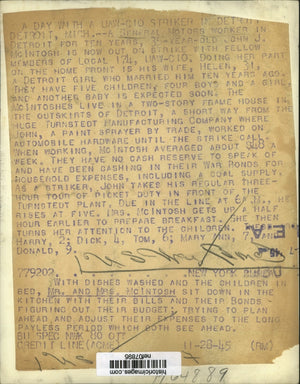 A DAY WITH A UAW-CIO STRIKER IN DETROIT
DETROIT, MICH.--A GENERAL MOTORS WORKER IN
DETROIT FOR TEN YEARS, -YEAR-OLD JOHN J.
MCINTOSH IS NOW OUT ON STRIKE WITH FELLOW
MEMBERS OF LOCAL 174, UAW-CIO. DOING HER PART
ON THE HOME FRONT IS HIS WIFE, HELEN, 31,
A DETROIT GIRL WHO MARRIED HIM TEN YEARS AGO.
THEY HAVE FIVE CHILDREN, FOUR BOYS AND A GIRL,
AND ANOTHER BABY IS EXPECTED SOON. THE
MCINTOSHES LIVE IN A TWO-STORY FRAME HOUSE IN
THE OUTSKIRTS OF DETROIT, A SHORT WAY FROM THE
HUGE TURNSTEDT MANUFACTURING COMPANY WHERE
JOHN, A PAINT SPRAYER BY TRADE, WORKED ON
AUTOMOBILE HARDWARE UNTIL THE STRIKE CALL.
WHEN WORKING, MCINTOSH AVERAGED ABOUT $48 A
WEEK. THEY HAVE NO CASH RESERVE TO SPEAK OF
AND HAVE BEEN CASHING IN THEIR WAR BONDS FOR
HOUSEHOLD EXPENSES, INCLUDING A COAL SUPPLY.
AS A STRIKER, JOHN TAKES HIS REGULAR THREE-
HOUR TOUR OF PICKET DUTY IN FRONT OF THE
TURNSTEDT PLANT. DUE IN THE LINE AT 6 A.M., HE
RISES AT FIVE. MRS. MCINTOSH GETS UP A HALF
HOUR EARLIER TO PREPARE BREAKFAST. SHE THEN
TURNS HER ATTENTION TO THE CHILDREN,
HARRY, 2; DICK, 4, TOM, 6; MARY ANN, 7,
DONALD, 9.
779202. NEW YORK BUREAU
WITH DISHES WASHED AND THE CHILDREN IN
BED, MR. AND MRS. MCINTOSH SIT DOWN IN THE
KITCHEN WITH THEIR BILLS AND THEIR BONDS -
FIGURING OUT THEIR BUDGET, TRYING TO PLAN
AHEAD AND ADJUST THEIR EXPENSES TO THE LONG
PAYLESS PERIOD WHICH BOTH SEE AHEAD.
BU SPEC NWK
CREDIT LINE (ACME) 11-28-45 (RM)
historicimages.com
nef07895
1164889